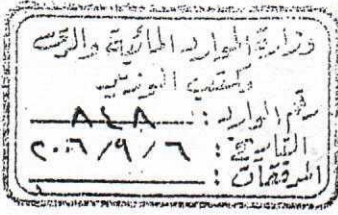 وزارة الموارد المائية والري
مكتب الوزير
رقم الوارد : ٨٤٨
التاريخ : ٦ / ٩ / ٢٠٠٦
المرفقات :